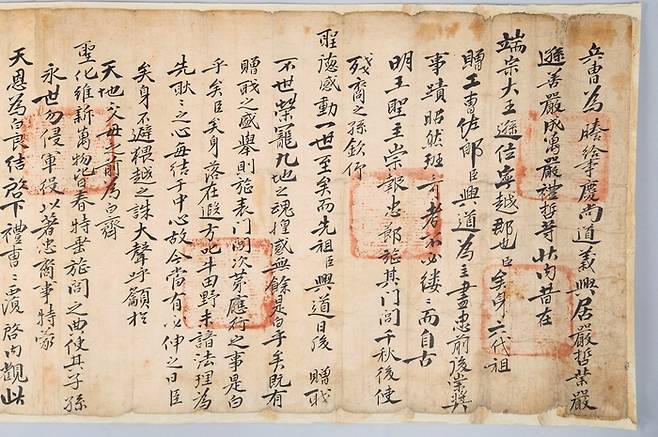 兵曹爲謄給事慶尙道義興居嚴哲業嚴
遜善嚴成萬嚴禮哲等狀內昔在
端宗大王遜位寧越郡也臣矣身六代祖
贈工曹佐郎臣興道爲主盡忠前後崇奬
事蹟昭然班〻可考不必縷〻而自古
明王聖主崇報忠節旌其門閭千秋後使
殘裔之孫欽仰
聖德感動一世至矣而先祖臣興道日後 贈職
不世榮寵九地之魂惶感無餘是白乎矣既有
贈職之盛擧則旌表門閭次第應行之事是白
乎矣臣矣身落在遐方叱半田野未諳法理爲
先耿〻之心每結于中心故今當有以伸之日臣
矣身不避猥越之誅大聲呼籲於
天地父母之前爲白齊
聖化維新萬物皆春特垂旌閭之典使其子孫
永世勿侵軍役以著忠裔事特蒙
天恩爲白良結啓下禮曹〻覆啓內觀此